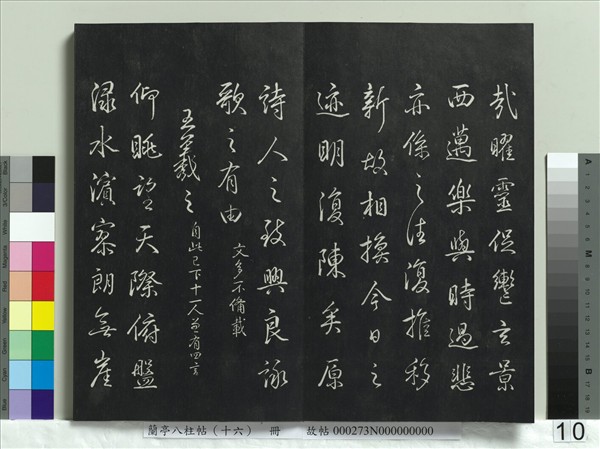 哉曜靈促轡玄景
西邁樂與時過悲
亦係之往復推移
新故相換今日之
迹明復陳矣原
詩人之致興良詠
歌之有由
文多不備載
王羲之
自此已下十一人並有四言
仰眺望天際俯盤
渌水濱寥朗無崖
蘭亭八柱帖(十六) 冊 故帖 000273N000000000
10